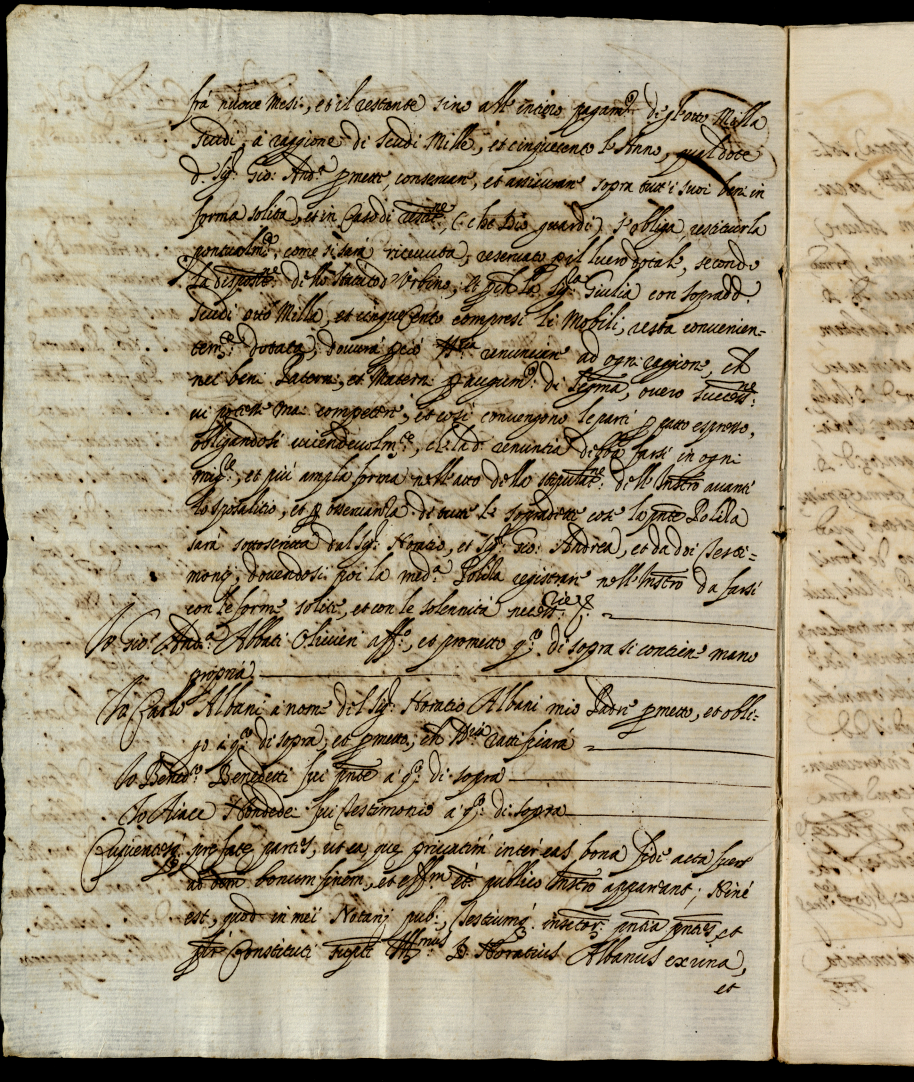 frà nuove Mesi, et il restante sino all' intiero pagam.to di gl'otto Milla
scudi, à raggione di scudi Mille, et cinquecento l'Anno, qual dote
d.o Sig.r Gio: And.a pmette, conservare, et assicurare sopra tutt'i suoi beni in
forma solita, et in Caso di restit.ne, (: che Dio guardi) s'obliga restituirla
pontualm.te come si sarà ricevuta, reservato il lucro dotale, secondo
la dispost.ne dello statuto d'Urbino, Et pche la Sig.ra Giulia con sopradd.
scudi otto Milla, et cinque Cento compresi li Mobili, resta convenien-
tem.te dotata, doverà pciò renunciare ad ogni raggione, ch
nei beni Paterni, et Materni p augum.to di legitima, overo success.ne
vi potesse mai competere, et così convengono le parti p patto espresso,
obligandosi vicendevolm.te, che la d.a renuntia debba farsi in ogni
mig.re, et più ampla forma nell'atto della stipulat.ne dell'Instro avanti
lo sposalitio, et p osservanza di tutte le sopradette cose la pnte Poliza
sarà sottoscritta dal Sig.r Horatio, et Sig.r Gio: Andrea, et da doi Testi-
monij, dovendosi poi la med.a Poliza registrare nell'Instro da farsi
con le forme solite, et con le solennità necess.rie &.
Io Gio: And.a Abbati Olivieri aff.o, et prometto q.to di sopra si contiene mano
propria
Io Carlo Albani à nome del Sig.r Horatio Albani mio Padre pmetto, et obli-
go à q.to di sopra, et pmetto, ch ratificarà
Io Bened.o Benedetti fui pnte à q.to di sopra
Io Aiace Hondedei fui testimonio a q.to di sopra
Cupientesq. prefate partes, ut ea, que privatim inter eas bona fide acta fuere
ad bonum finem, et effm et publico Instro appareant; Hinc
est, quod in mei Notarij pub.ci, Testiumq. infrtor. pntia pntes et
psr Constituti Ill.mus D. Horatius Albanus ex una,
et